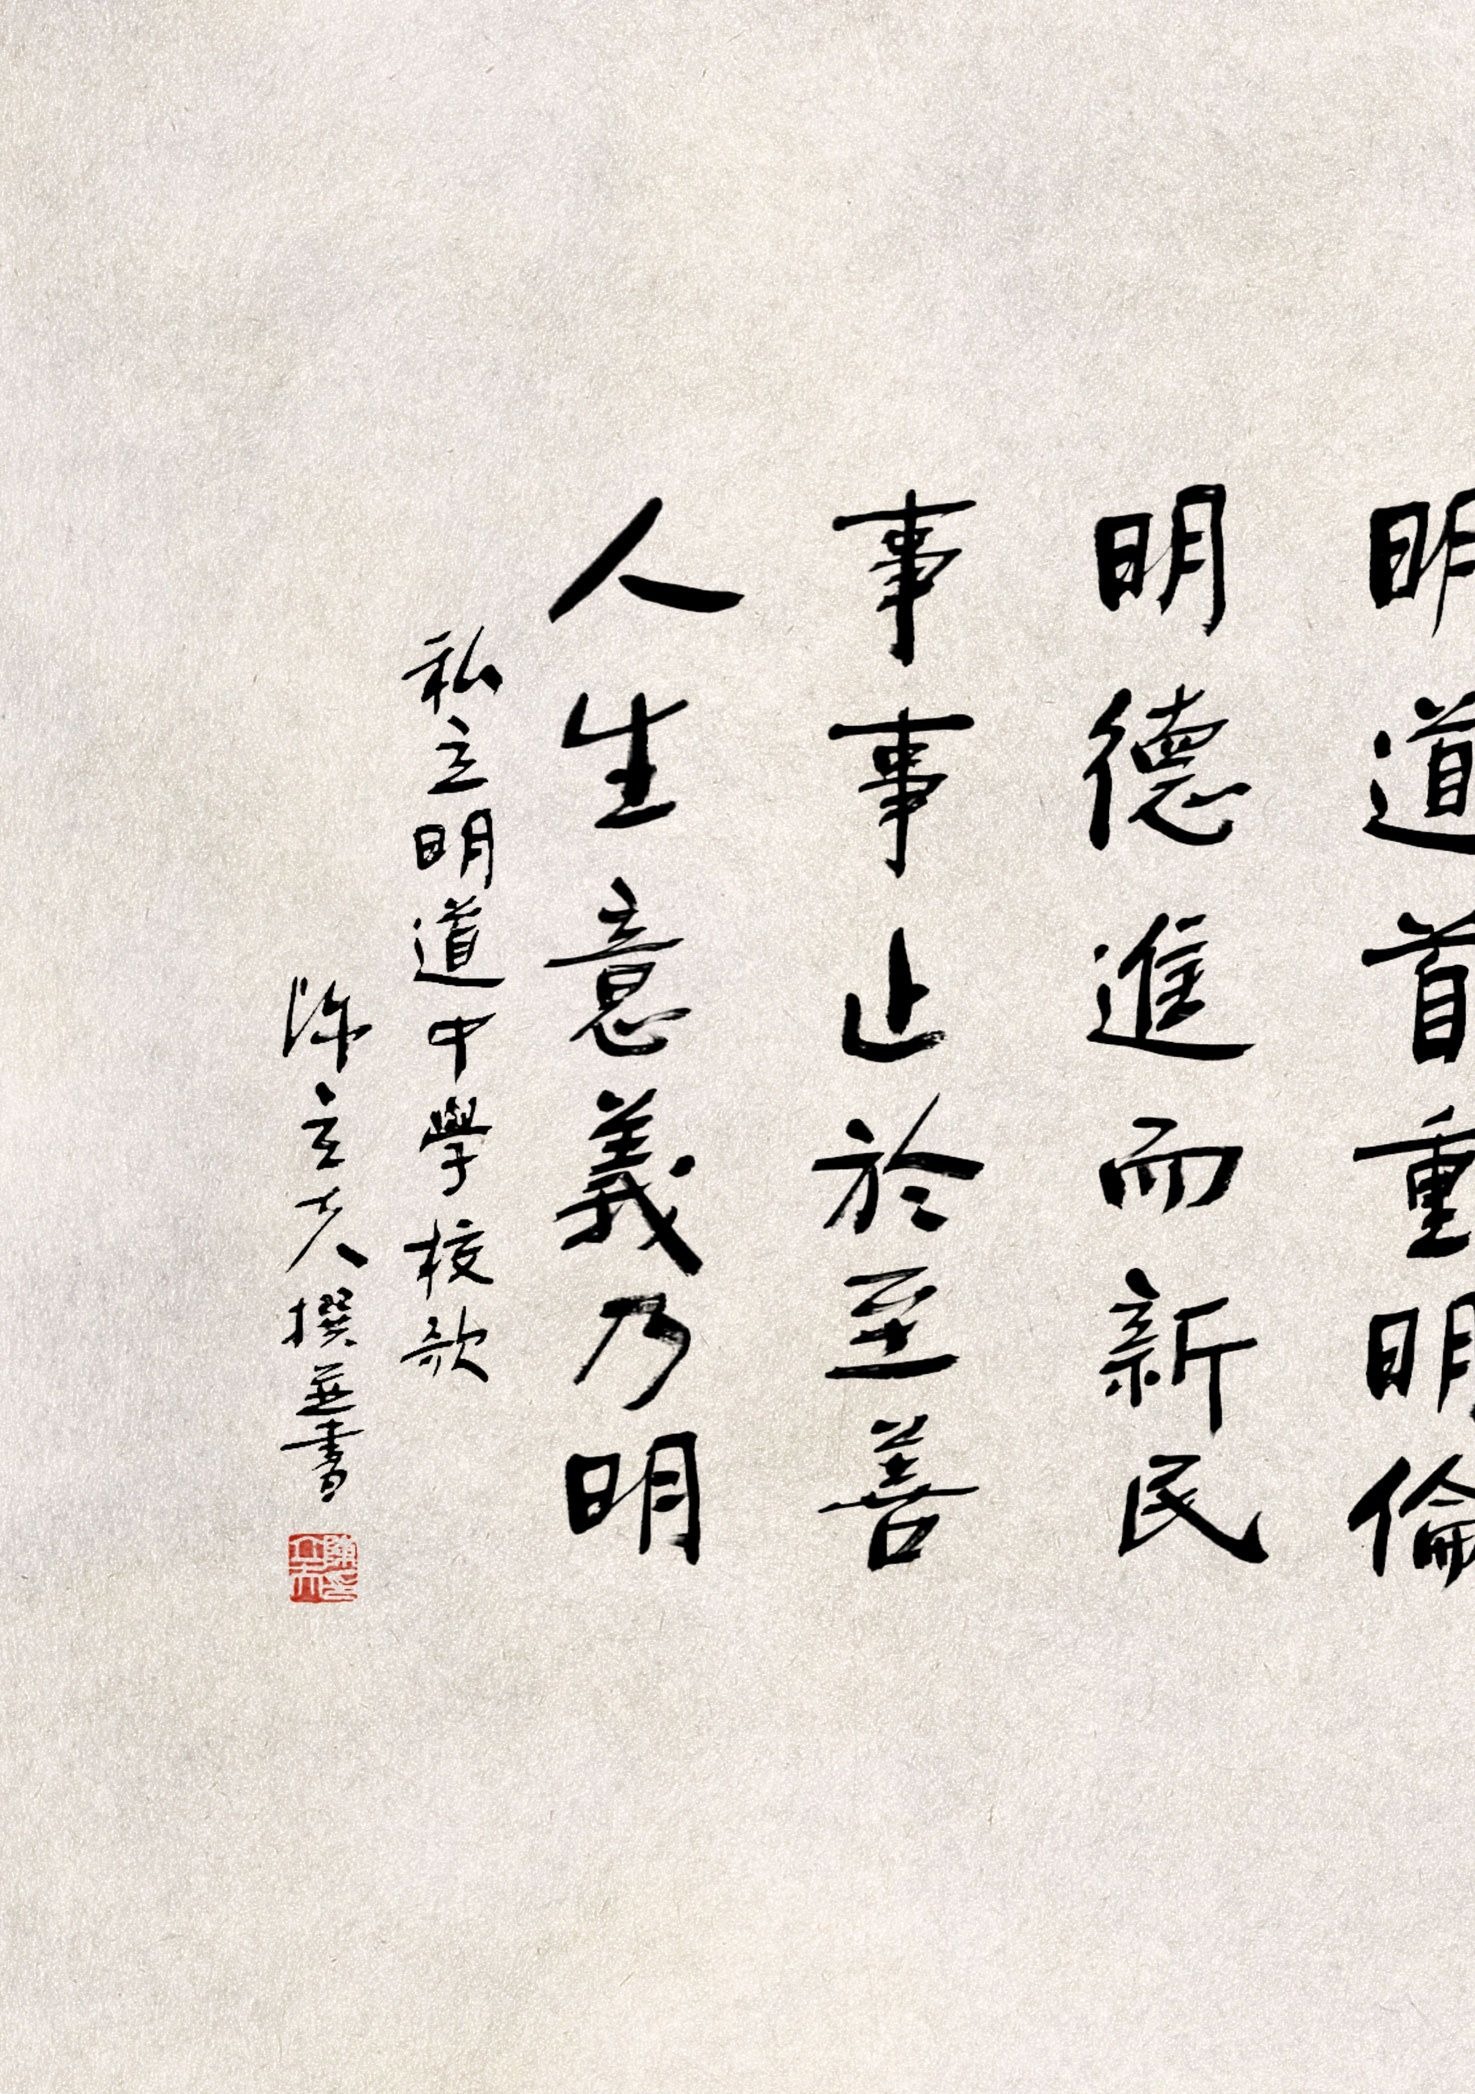 明道首重明倫
明德進而新民
事事止於至善
人生意義乃明
私立明道中學校歌
陳立夫撰並書
陳立夫印